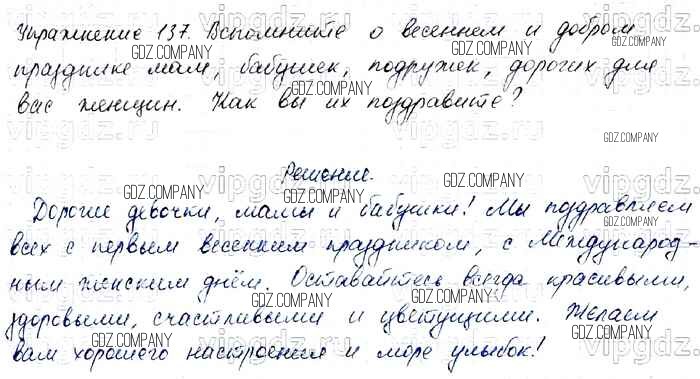 Упражнение 137. Вспомните о весеннем и добром
празднике мам, бабушек, подружек, дорогих для
вас женщин. Как вы их поздравите?
Решение.
Дорогие девочки, мамы и бабушки! Мы поздравляем
всех с первым весенним праздником, с Международ-
ным женским днём. Оставайтесь всегда красивыми,
здоровыми, счастливыми и цветущими. Желаем
вам хорошего настроения и море улыбок!